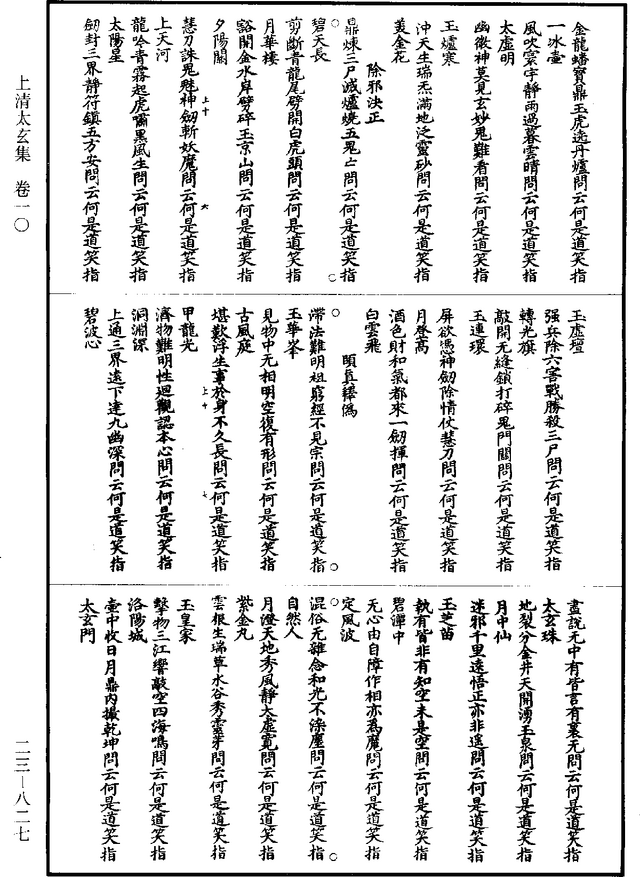 上清太玄集　卷一〇
金龍蟠寶鼎玉虎遶丹爐問云何是道笑指
一冰壺
風吹寰宇靜雨過暮雲晴問云何是道笑指
太虛明
幽微神莫見玄妙鬼難看問云何是道笑指
玉爐寒
沖天生瑞炁滿地泛靈砂問云何是道笑指
美金花
除邪決正
鼎煉三尸滅爐燒五鬼亡問云何是道笑指
碧天長
剪斷青龍尾劈開白虎頭問云何是道笑指
月華樓
豁開金水岸劈碎玉京山問云何是道笑指
夕陽關
慧刀誅鬼魅神劒斬妖魔問云何是道笑指
上天河
龍吟青霧起虎嘯黑風生問云何是道笑指
太陽星
劒封三界靜符鎮五方安問云何是道笑指
上十
六
玉虛壇
强兵除六害戰勝殺三尸問云何是道笑指
轉光旗
敲開无縫鎖打碎鬼門關問云何是道笑指
玉連環
屏欲憑神劒除情仗慧刀問云何是道笑指
月登高
酒色財和氣都來一劒揮問云何是道笑指
白雲飛
頤真釋偽
滯法難明祖窮經不見宗問云何是道笑指
玉華峯
見物中无相明空復有形問云何是道笑指
古風庭
堪歎浮生事於身不久長問云何是道笑指
甲龍光
濟物難明性迴觀認本心問云何是道笑指
洞淵深
上通三界遠下達九幽深問云何是道笑指
碧波心
上十
七
盡說无中有皆言有裏无問云何是道笑指
太玄珠
地裂分金井天開湧玉泉問云何是道笑指
月中仙
迷邪千里遠悟正亦非遥問云何是道笑指
玉芝苗
執有皆非有知空未是空問云何是道笑指
碧潭中
无心由自障作相亦為魔問云何是道笑指
定風波
混俗无雜念和光不染塵問云何是道笑指
自然人
月澄天地秀風靜太虛寬問云何是道笑指
紫金丸
雲根生瑞草水谷秀靈芽問云何是道笑指
玉皇家
擊物三江響敲空四海鳴問云何是道笑指
洛陽城
壺中收日月鼎內撮乾坤問云何是道笑指
太玄門
二三—八二七